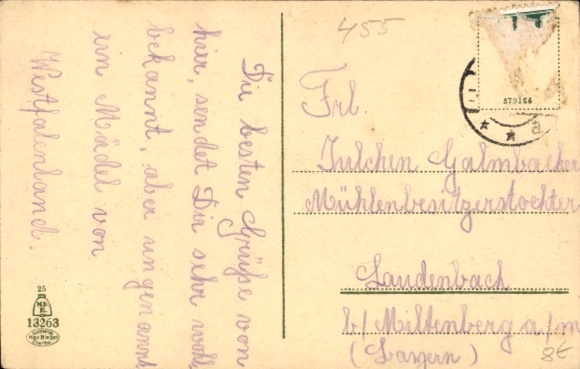 Die besten Grüße von
hier, sendet Dir sehr wohl
bekannt, aber ungenannt
ein Mädel von
Westfalenland.
455
Frl.
Julchen Galmbacher
Mühlenbesitzerstochter
Laudenbach
b/ Miltenberg a/m
(Bayern)
8€
379166
* * a
25
13263